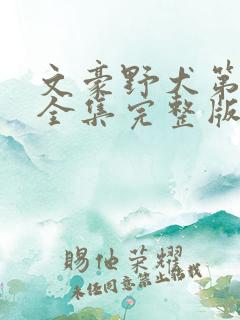 文豪野犬第
全集完整版
赐他荣耀
未经同意禁止转载